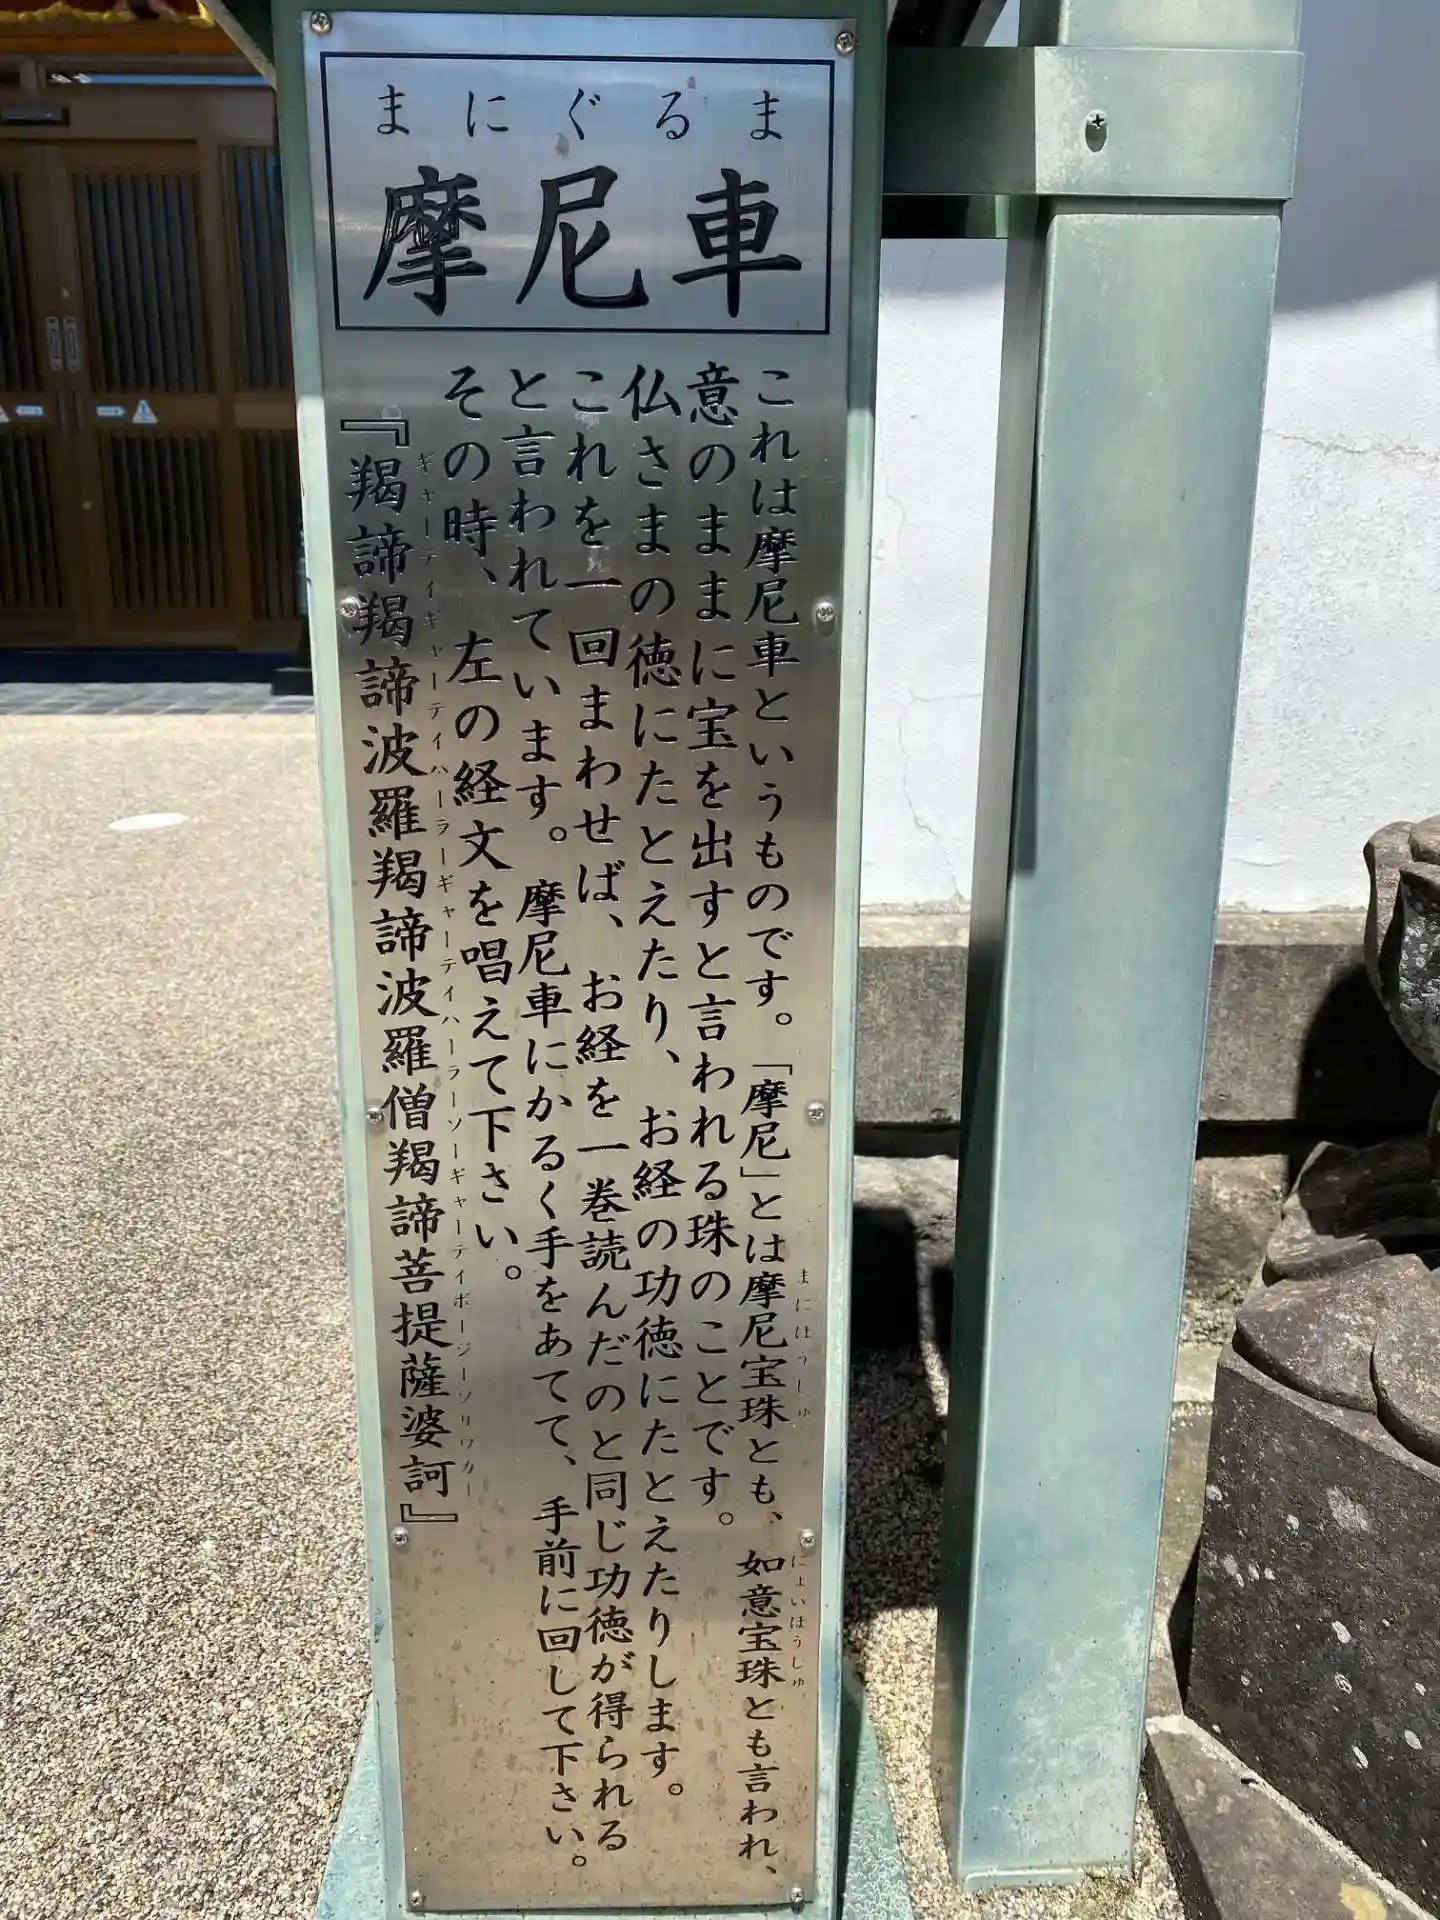 まにぐるま
摩尼車
これは摩尼車というものです。「摩尼」とは摩尼宝珠とも、如意宝珠とも言われ、
まにほうしゅ
にょいほうしゅ
意のままに宝を出すと言われる珠のことです。
仏さまの徳にたとえたり、お経の功徳にたとえたりします。
これを一回まわせば、お経を一巻読んだのと同じ功徳が得られる
と言われています。摩尼車にかるく手をあてて、手前に回して下さい。
その時、左の経文を唱えて下さい。
ギャーテイギャーテイハーラーギャーテイハーラーソーギャーテイボージーソワカー
『羯諦羯諦波羅羯諦波羅僧羯諦菩提薩婆訶』